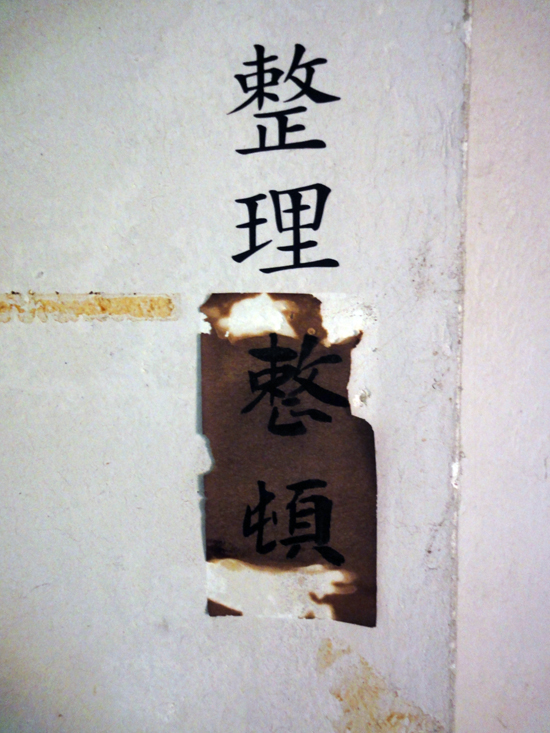 整理
整頓